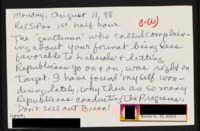 Monday, August 11, 98
Re: CSPan 1st half hour
The "gentleman" who called complain-
ing about your format being less
favorable to liberals & letting
Republicans go on & on, was right on
Target. I have found myself won-
dering lately, why there are so many
Republicans conducting the Programs.
Don't sell out Brian!